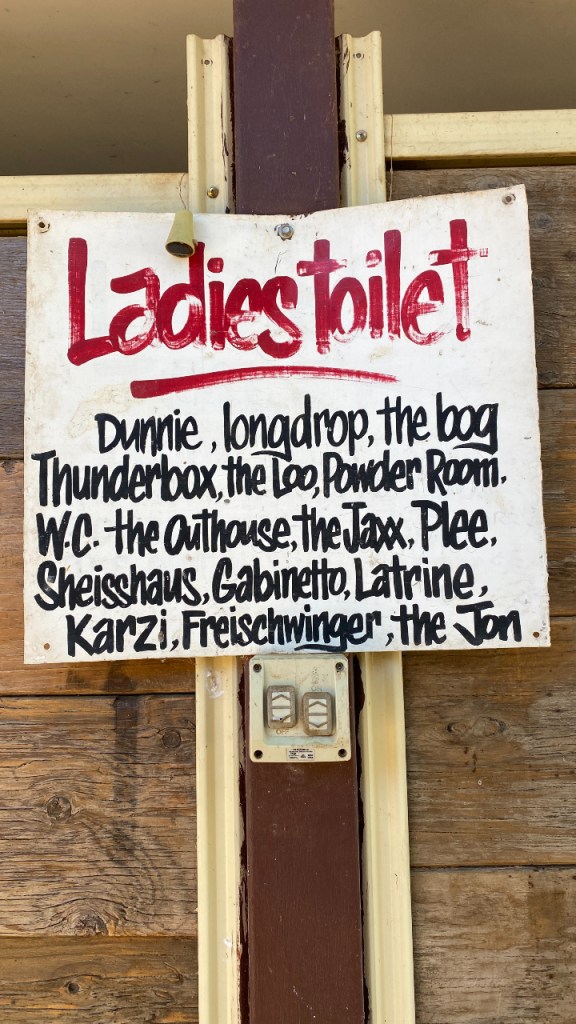 Ladies toilet
Dunnie, longdrop, the bog
Thunderbox, the Loo, Powder Room.
W.C. the Outhouse, the Jaxx, Plee,
Sheisshaus, Gabinetto, Latrine,
Karzi, Freischwinger, the Jon